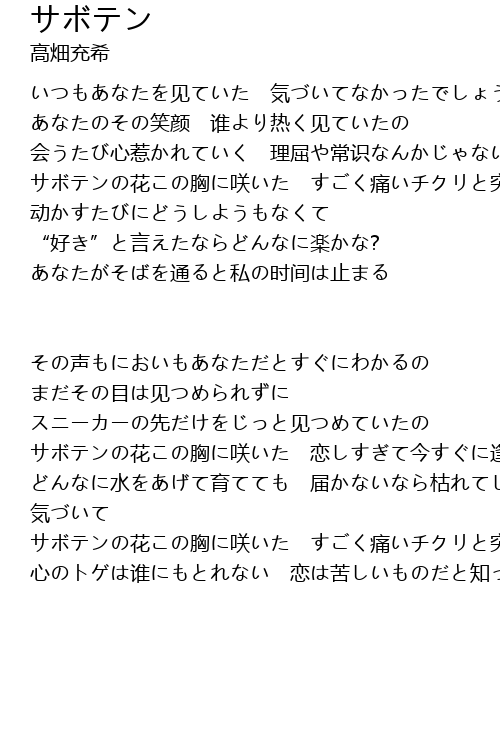 サボテン
高畑充希
いつもあなたを见ていた　気づいてなかったでしょう
あなたのその笑颜　谁より热く见ていたの
会うたび心惹かれていく　理屈や常识なんかじゃない
サボテンの花この胸に咲いた　すごく痛いチクリと突
动かすたびにどうしようもなくて
“好き”と言えたならどんなに楽かな?
あなたがそばを通ると私の时间は止まる
その声もにおいもあなただとすぐにわかるの
まだその目は见つめられずに
スニーカーの先だけをじっと见つめていたの
サボテンの花この胸に咲いた　恋しすぎて今すぐに逢
どんなに水をあげて育てても　届かないなら枯れてし
気づいて
サボテンの花この胸に咲いた　すごく痛いチクリと突
心のトゲは谁にもとれない　恋は苦しいものだと知っ